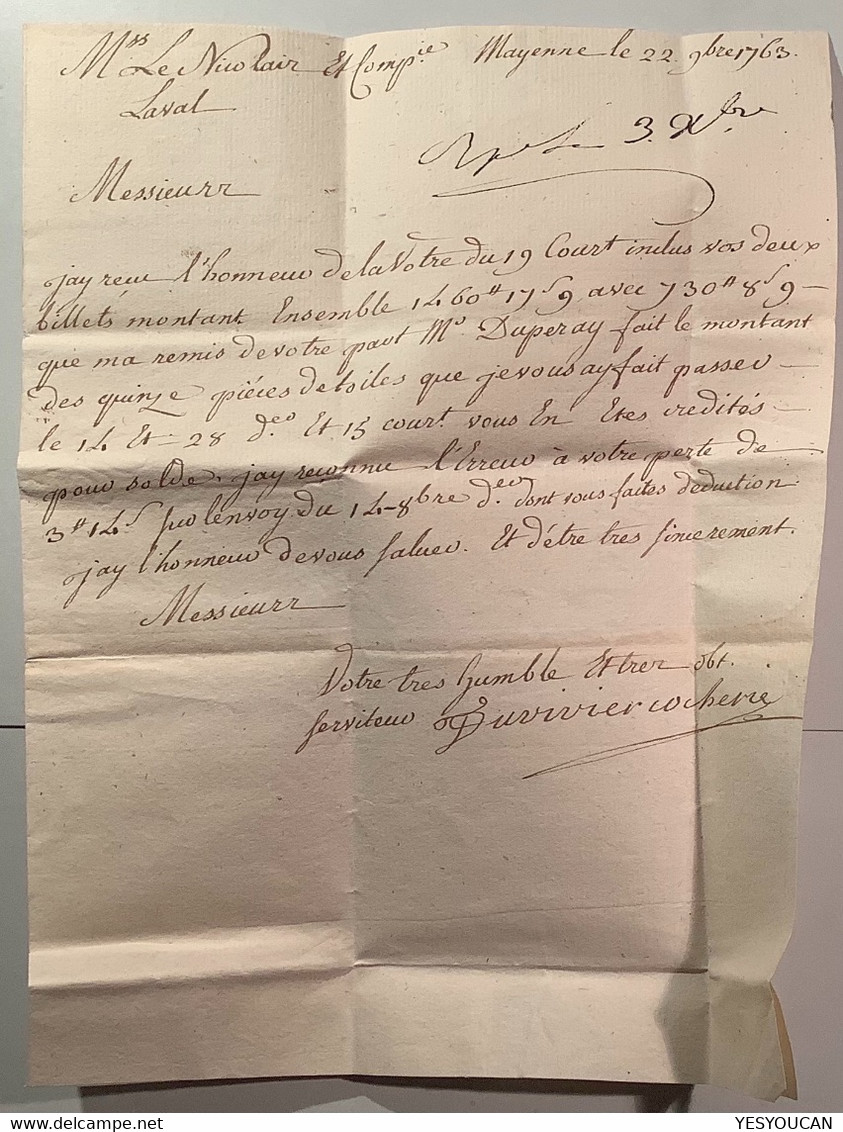 Mrs Le Nicolais Et Compie Mayenne le 22 9bre 1763.
Laval
Rpdu Le 3. Xbre
Messieurs
jay reçu l'honneur de la Votre du 19 Court inclus vos deux
billets montant Ensemble 1460# 17s 9 avec 730# 8s 9
que ma remis de votre part Mr Duperay fait le montant
des quinze piéces de toiles que je vous ay fait passer
le 14 Et 28 do Et 15 court. vous En Etes credités
pour solde, jay reconnu l'Erreur à votre perte de
3# 14s sur lenvoy du 14 8bre do dont vous faites deduction
jay l'honneur de vous saluer. Et d'étre tres sincerement.
Messieurs
Votre tres humble Et tres obt.
serviteur Duvivier cocherie
YESYOUCAN